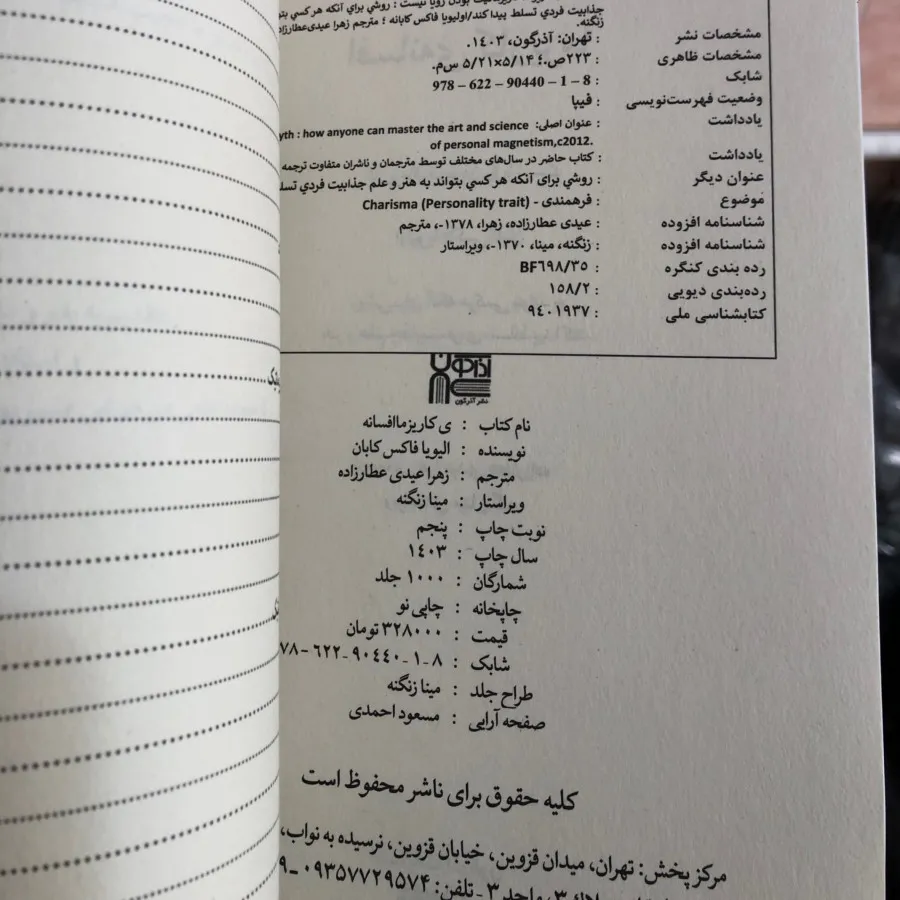 جذابیت فردي تسلط پیدا کند/اولیویا فاکس کابانه ؛ مترجم زهرا عیدی‌عطارزاد
زنگنه.
مشخصات نشر : تهران: آذرگون، ۱۴۰۳.
مشخصات ظاهری : ۲۲۳ص.؛ ۵/۱۴×۵/۲۱ س‌م.
شابک : 978 – 622 – 90440 – 1 – 8
وضعیت فهرست‌نویسی : فیپا
یادداشت : عنوان اصلی: yth : how anyone can master the art and science
of personal magnetism,c2012.
یادداشت : کتاب حاضر در سال‌های مختلف توسط مترجمان و ناشران متفاوت ترجمه
عنوان دیگر : روشي برای آنکه هر کسي بتواند به هنر و علم جذابیت فردي تسل
موضوع : فرهمندی - Charisma (Personality trait)
شناسنامه افزوده : عیدی عطارزاده، زهرا، ۱۳۷۸-، مترجم
شناسنامه افزوده : زنگنه، مینا، ۱۳۷۰-، ویراستار
رده بندی کنگره : BF۶۹۸/۳۵
رده‌بندی دیویی : ۱۵۸/۲
کتابشناسی ملی : ۹۴۰۱۹۳۷
آذرگون
نشر آذرگون
نام کتاب : ی کاریزماافسانه
نویسنده : الیویا فاکس کابان
مترجم : زهرا عیدی عطارزاده
ویراستار : مینا زنگنه
نوبت چاپ : پنجم
سال چاپ : ۱۴۰۳
شمارگان : ۱۰۰۰ جلد
چاپخانه : چاپی نو
قیمت : ۳۲۸۰۰۰ تومان
شابک : ۷۸-۶۲۲-۹۰۴۴۰-۱-۸
طراح جلد : مینا زنگنه
صفحه آرایی : مسعود احمدی
کلیه حقوق برای ناشر محفوظ است
مرکز پخش: تهران، میدان قزوین، خیابان قزوین، نرسیده به نواب،
۳، واحد ۳ - تلفن: ۰۹۳۵۷۷۲۹۵۷۴ -